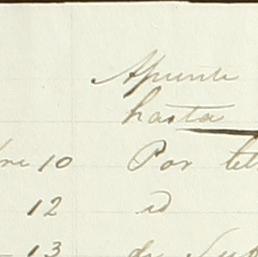 Apunte
hasta
re 10 Por let
12 id
13 de